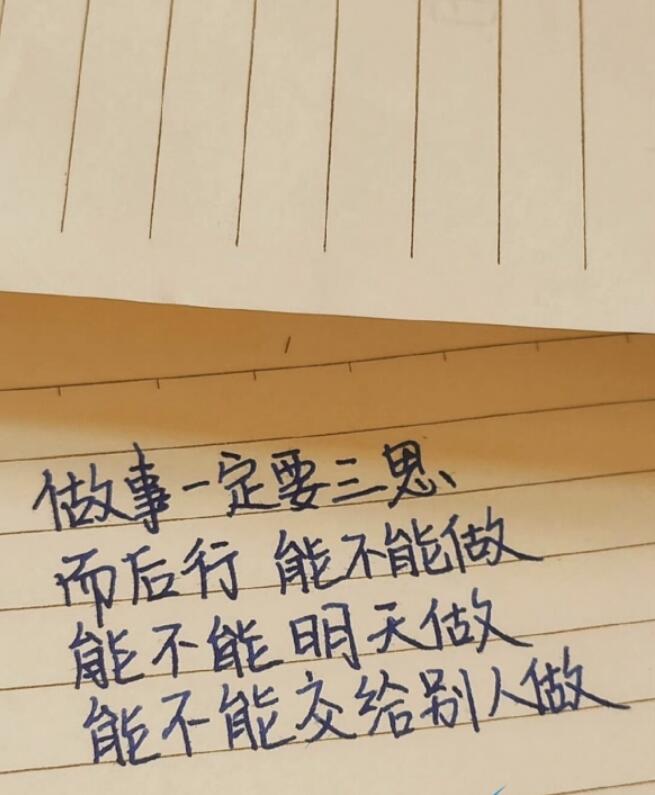 做事一定要三思
而后行 能不能做
能不能明天做
能不能交给别人做